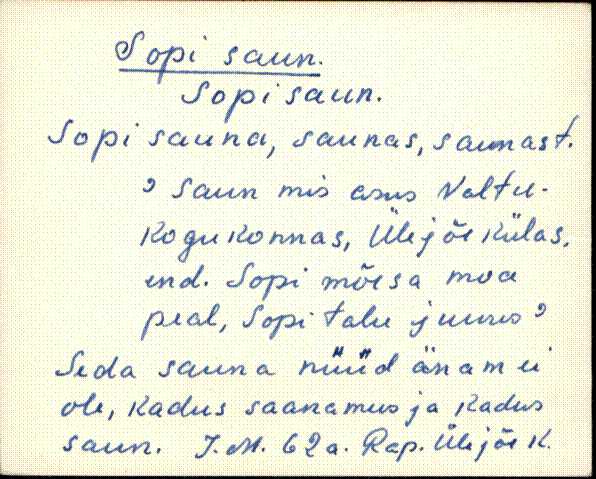 Sopi saun.
Sopi saun.
Sopi sauna, saunas, saunast.
? Saun mis asus Valtu-
kogukonnas, Ülejõe külas,
end. Sopi mõisa maa
peal, Sopi talu juures ?
Seda sauna nüüd änam ei
ole, kadus saanamus ja kadus
saun. J. M. 62 a. Rap. Ülejõe k.